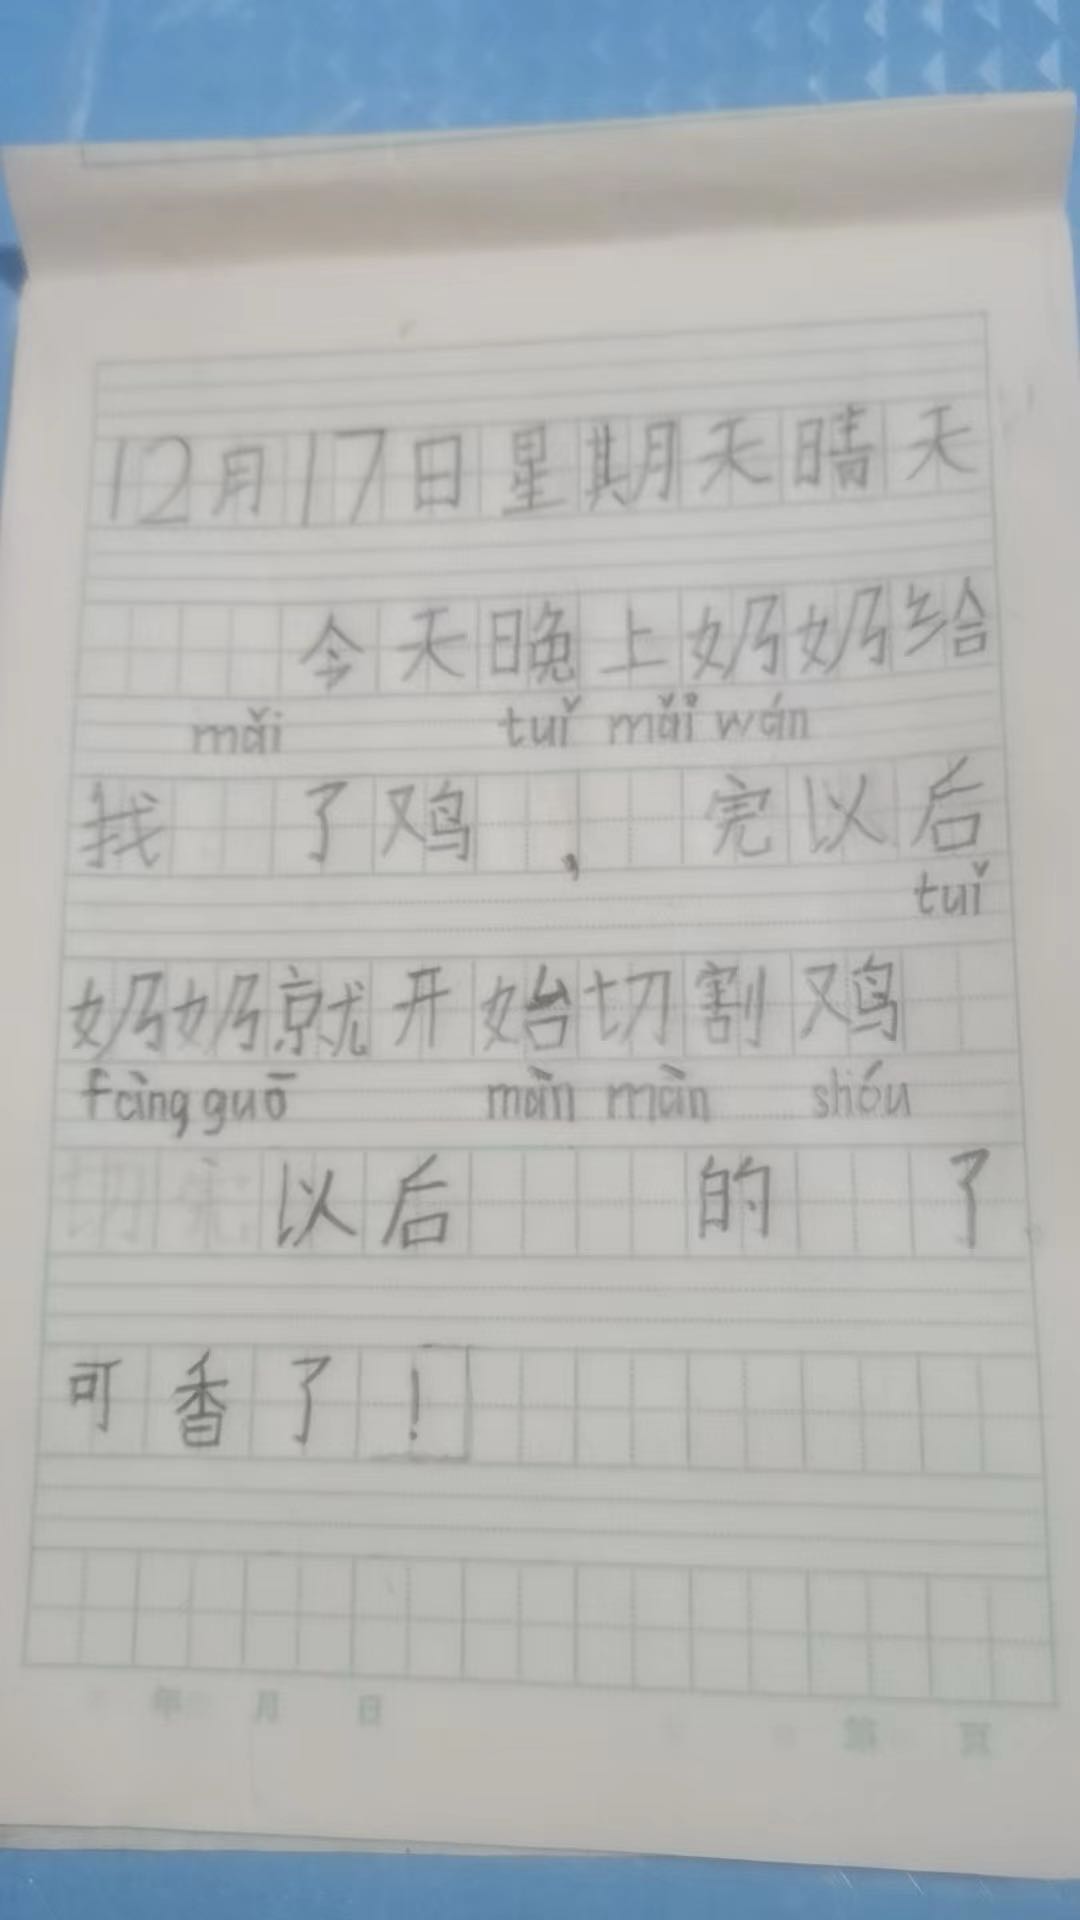 12月17日星期天晴天
今天晚上奶奶给
mǎi tuǐ mǎi wán
找了鸡，完以后
tuǐ
奶奶就开始切割鸡
fàng guō màn màn shóu
切完以后的了
可香了！
年 月 日 第 页